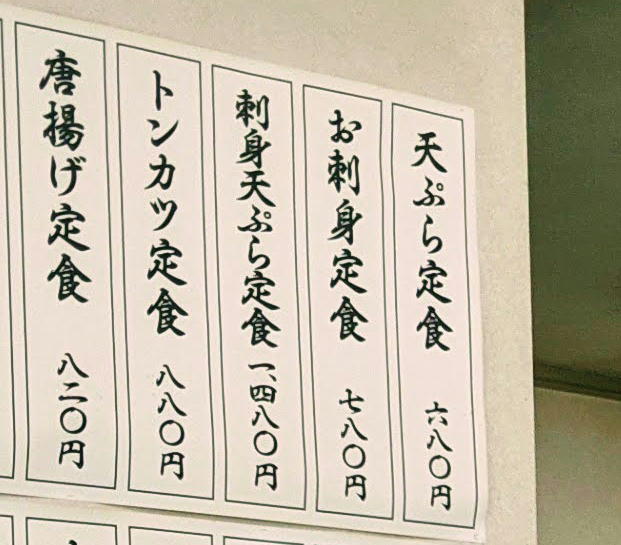 天ぷら定食 六八〇円
お刺身定食 七八〇円
刺身天ぷら定食 一、四八〇円
トンカツ定食 八八〇円
唐揚げ定食 八二〇円